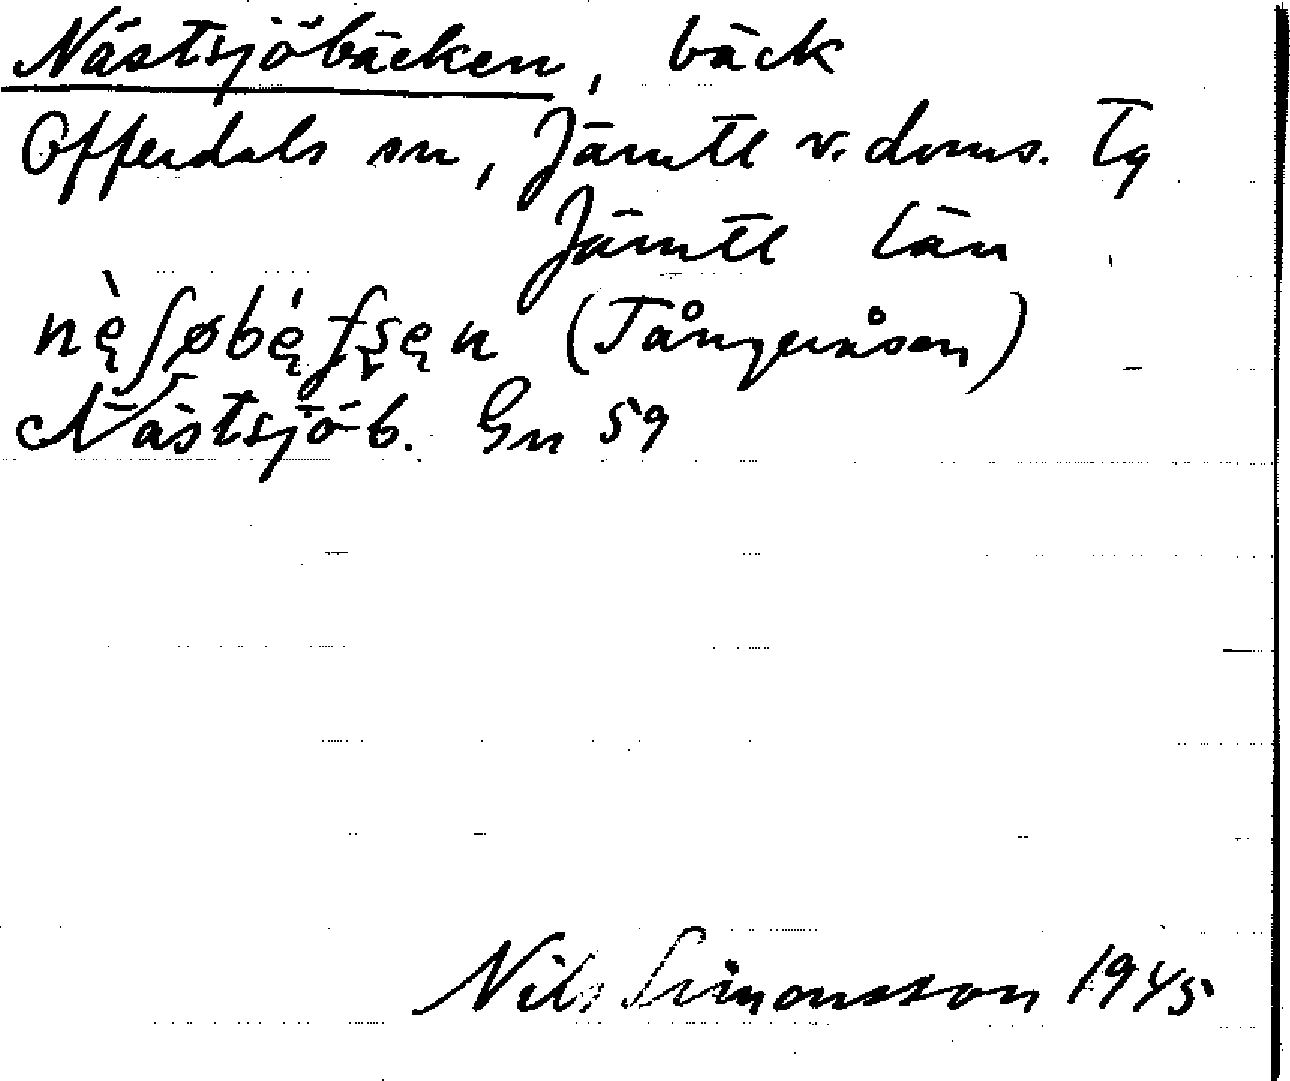 Nästsjöbäcken, bäck
Offerdals sn, Jämtl v. doms. Tg
Jämtl län
(Tångeråsen)
Nästsjöb. Gn 59
Nils Simonsson 1945